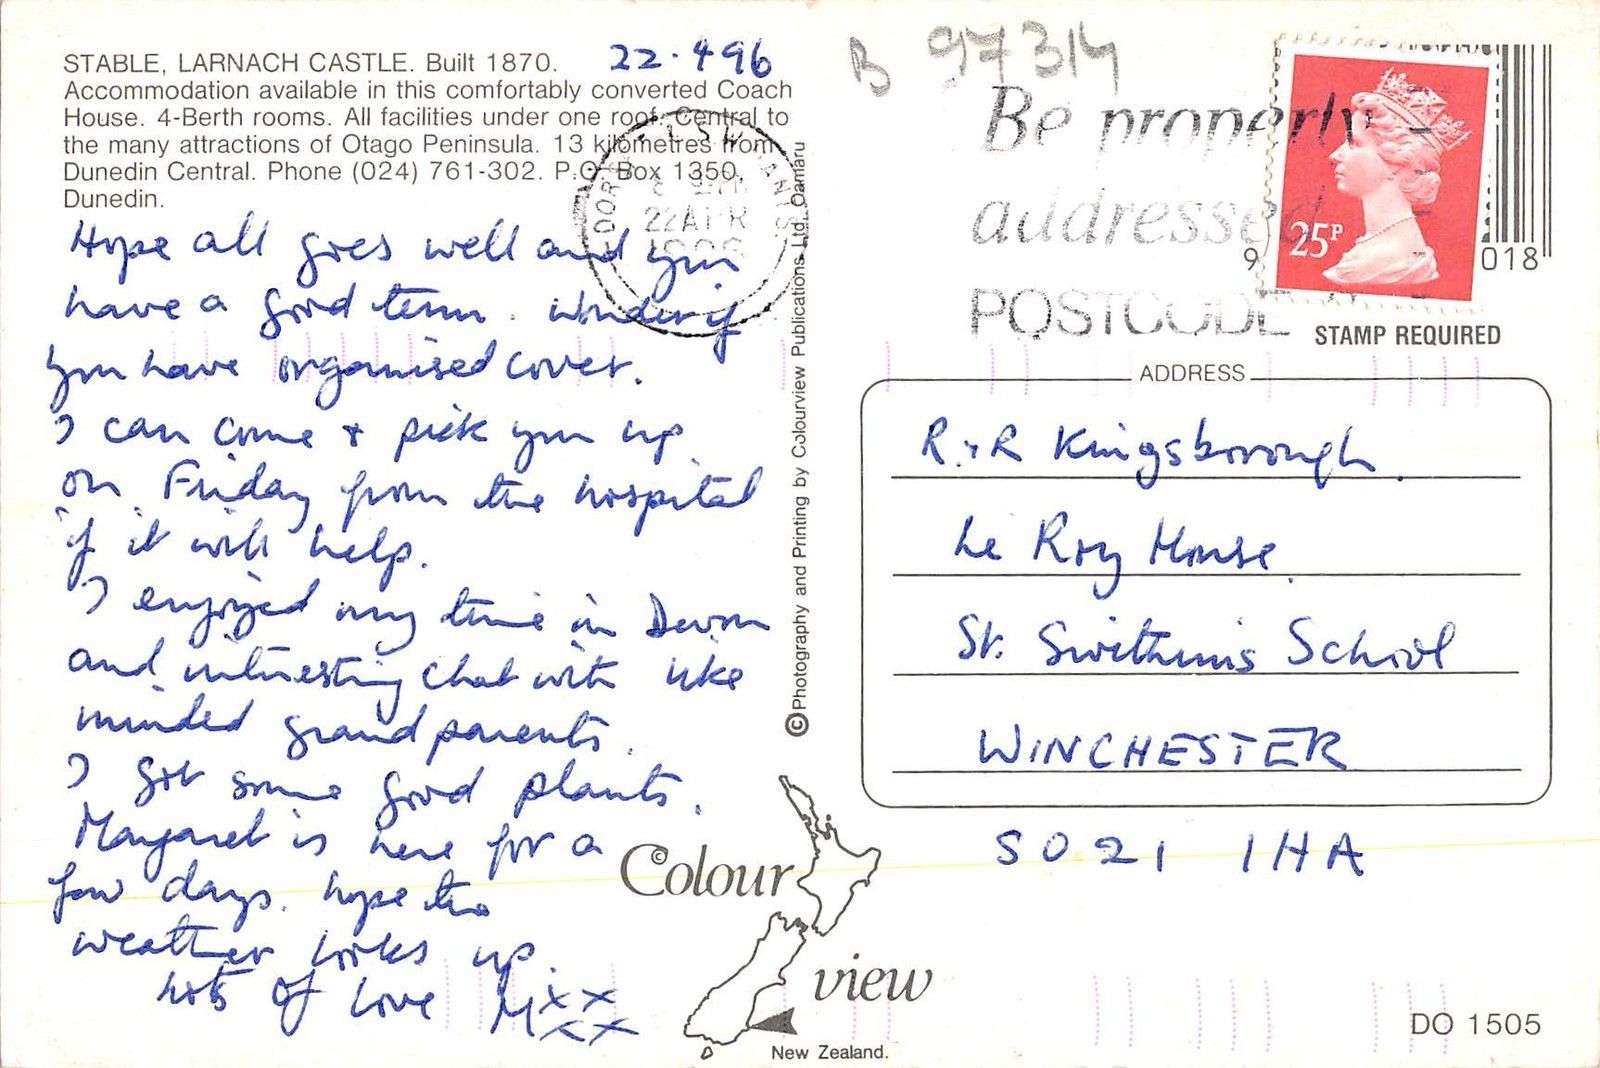 STABLE, LARNACH CASTLE. Built 1870.
22.4 96
Accommodation available in this comfortably converted Coach
House. 4-Berth rooms. All facilities under one roof. Central to
the many attractions of Otago Peninsula. 13 kilometres from
Dunedin Central. Phone (024) 761-302. P.O. Box 1350,
Dunedin.
Hope all goes well and you
have a good term. Wonder if
you have organised cover.
I can come + pick you up
on Friday from the hospital
if it will help.
I enjoyed my time in Devon
and interesting chat with like
minded grandparents.
I got some good plants.
Margaret is here for a
few days. hope the
weather looks up.
Lots of love Mxx
xx
22 APR
©Photography and Printing by Colourview Publications Ltd. Oamaru
B 97314
Be properly
addressed
POSTCODE
25P
9
018
STAMP REQUIRED
ADDRESS
R & R Kingsborough.
Le Roy House.
St. Swithuns School
WINCHESTER
SO21 1HA
©Colour
view
New Zealand.
DO 1505